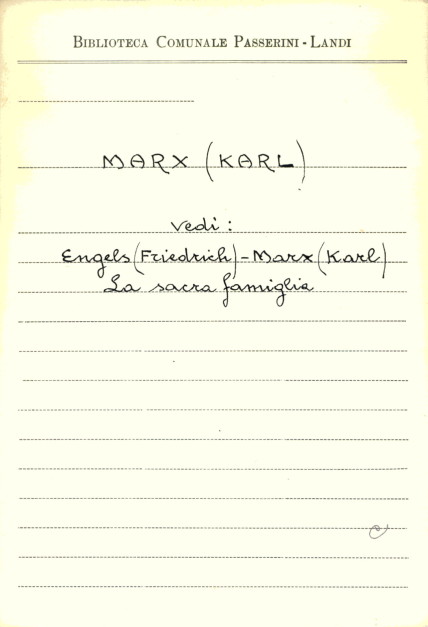 Biblioteca Comunale Passerini - Landi
MARX (KARL)
vedi:
Engels (Friedrich) - Marx (Karl)
La sacra famiglia